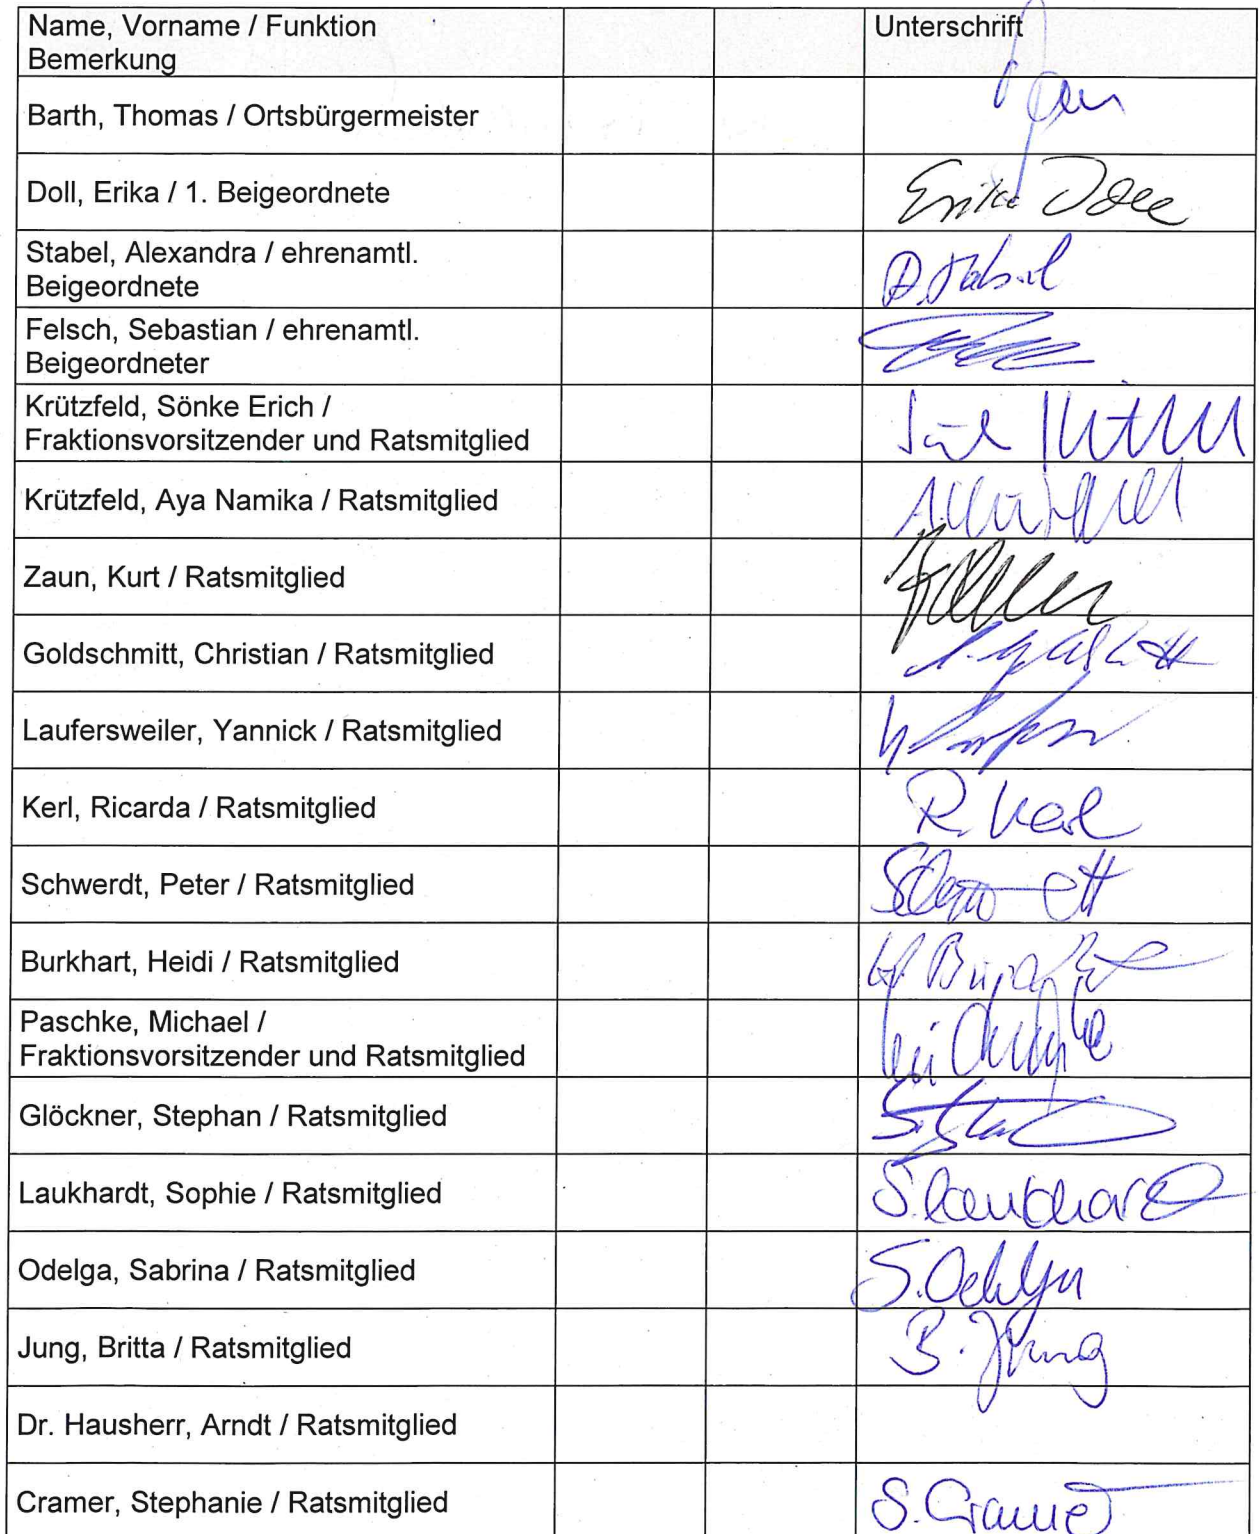 Name, Vorname / Funktion Unterschrift
Bemerkung
Barth, Thomas / Ortsbürgermeister
Doll, Erika / 1. Beigeordnete Erika Doll
Stabel, Alexandra / ehrenamtl. A. Stabel
Beigeordnete
Felsch, Sebastian / ehrenamtl.
Beigeordneter
Krützfeld, Sönke Erich /
Fraktionsvorsitzender und Ratsmitglied
Krützfeld, Aya Namika / Ratsmitglied
Zaun, Kurt / Ratsmitglied
Goldschmitt, Christian / Ratsmitglied
Laufersweiler, Yannick / Ratsmitglied
Kerl, Ricarda / Ratsmitglied R. Kerl
Schwerdt, Peter / Ratsmitglied
Burkhart, Heidi / Ratsmitglied
Paschke, Michael /
Fraktionsvorsitzender und Ratsmitglied
Glöckner, Stephan / Ratsmitglied
Laukhardt, Sophie / Ratsmitglied S. Laukhardt
Odelga, Sabrina / Ratsmitglied S. Odelga
Jung, Britta / Ratsmitglied B. Jung
Dr. Hausherr, Arndt / Ratsmitglied
Cramer, Stephanie / Ratsmitglied S. Cramer